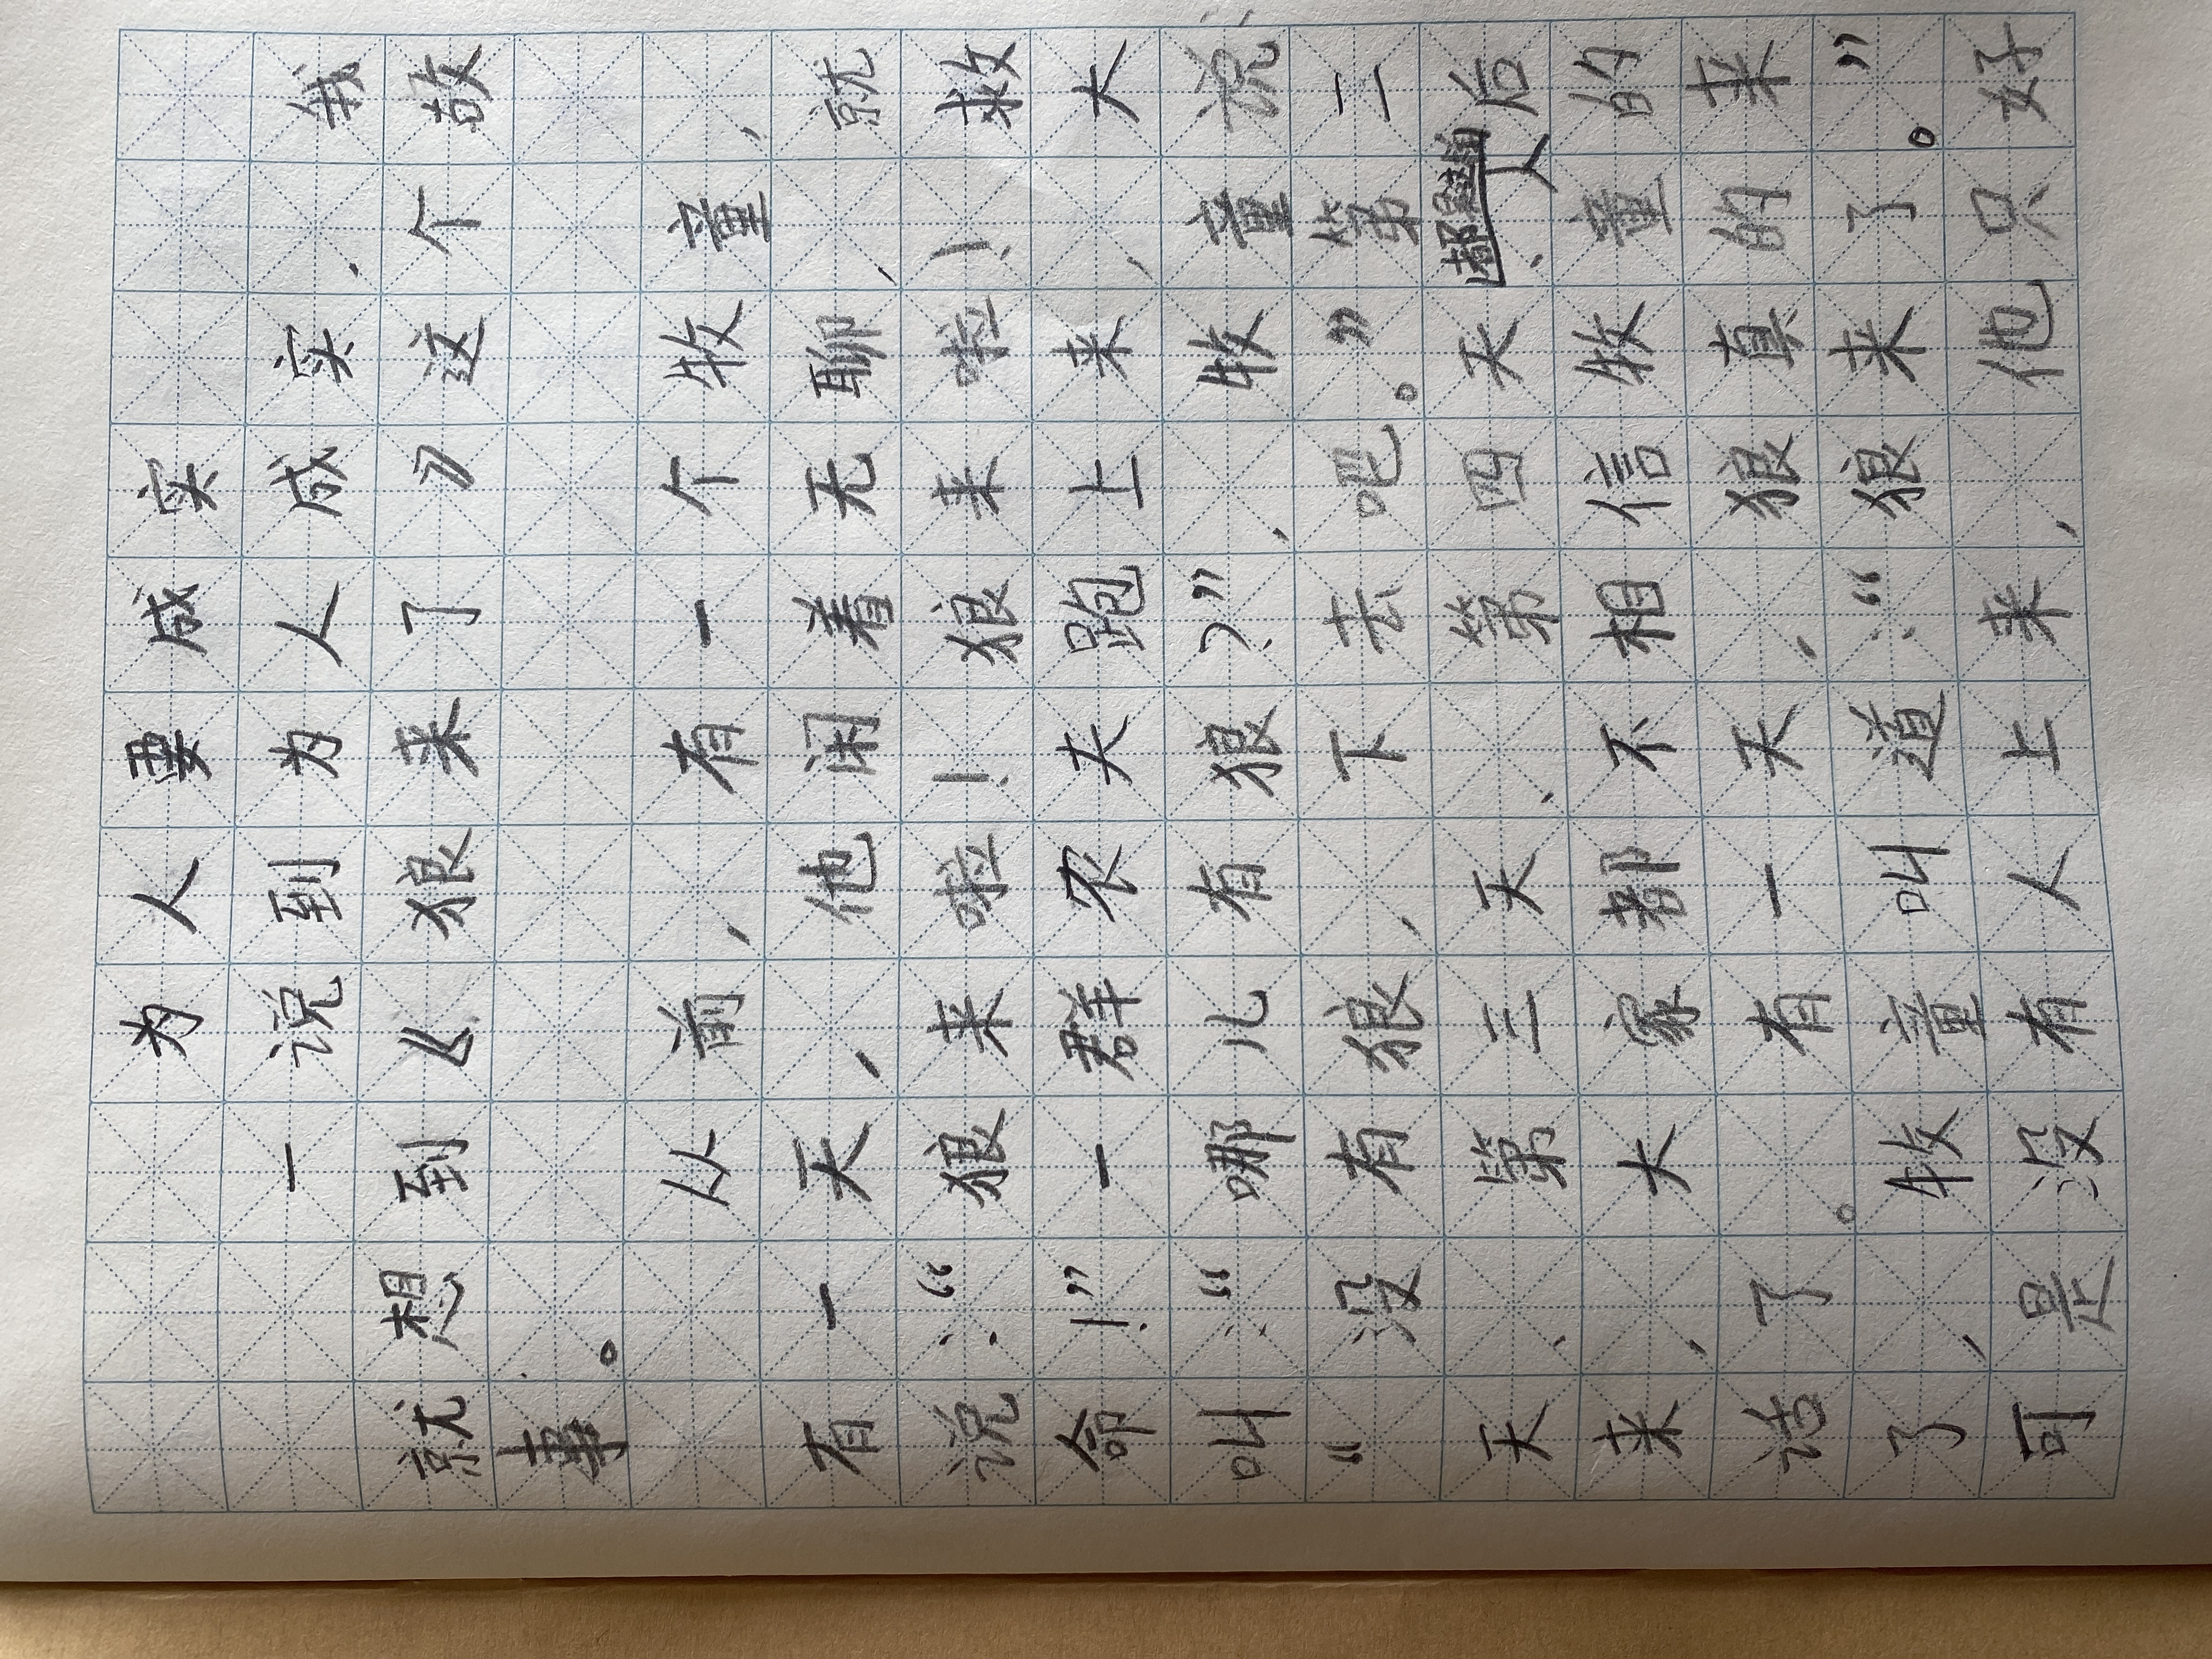 为人要成实
一说到为人成实，我
就想到《狼来了》这个故
事。
从前，有一个牧童，
有一天，他闲着无聊，就
说：“狼来啦！狼来啦！救
命！”一群农夫跑上来，大
叫：“哪儿有狼？”，牧童说：
“没有狼，下去吧。”第二
天、第三天、第四天、后
来，大家都不相信牧童的
话了。有一天，狼真的来
了，牧童叫道：“狼来了。”
可是没有人上来，他只好